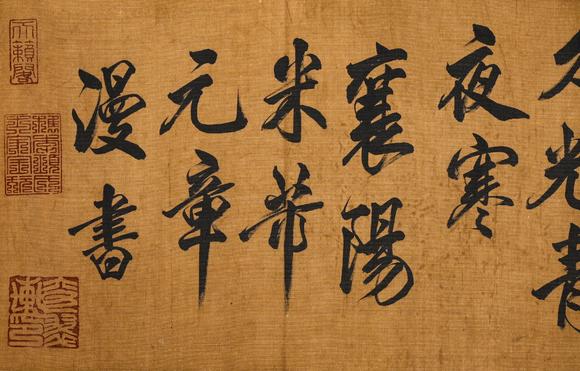 光青
夜寒
襄陽
米芾
元章
漫書
天籟閣